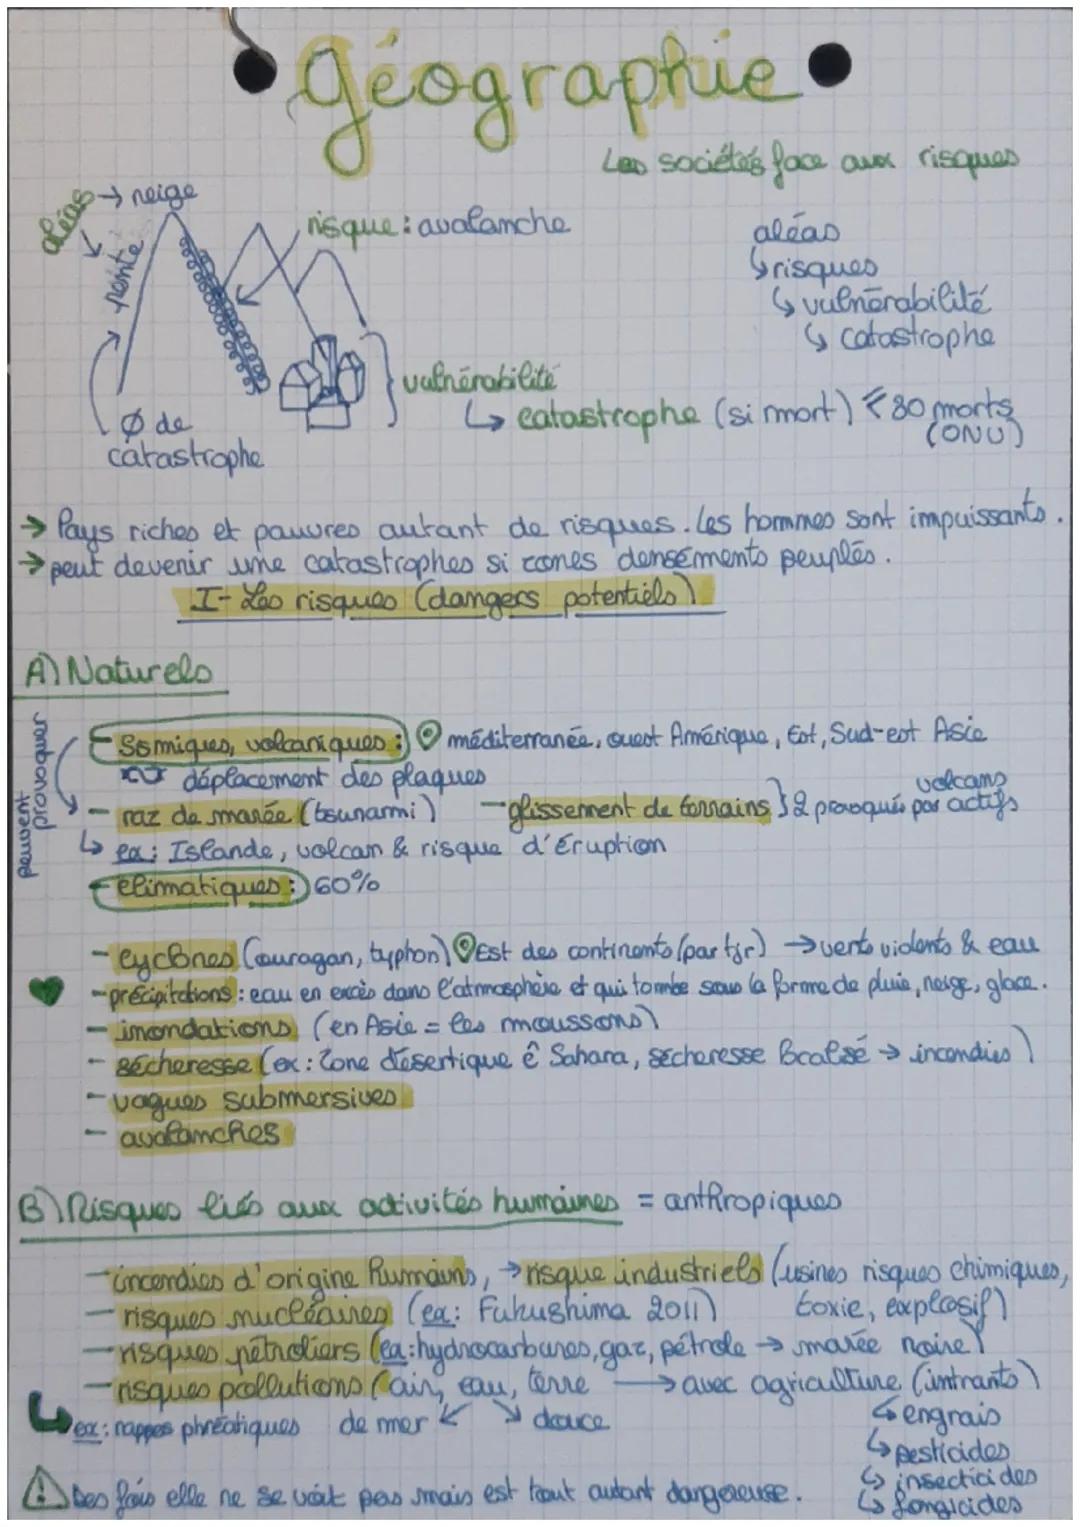 Géographie
Les sociétés face aux risques
aléas → neige
pente
risque : avalanche
aléas
↳ risques
↳ vulnérabilité
↳ catastrophe
vulnérabilité
↳ catastrophe (si mort) ⩽ 80 morts
(ONU)
Ø de
catastrophe
→ Pays riches et pauvres autant de risques. Les hommes sont impuissants.
→ peut devenir une catastrophes si zones denséments peuplés.
I- Les risques (dangers potentiels)
A) Naturels
peuvent
provoquer
- Sismiques, volcaniques : méditerranée, ouest Amérique, Est, Sud-est Asie
déplacement des plaques
- raz de marée (tsunami) - glissement de terrains } 2 provoqués par volcans actifs
↳ ex : Islande, volcan & risque d'éruption
- climatiques : 60%
- cyclones (ouragan, typhon) Est des continents (par tjr) → vents violents & eau
- précipitations : eau en excès dans l'atmosphère et qui tombe sous la forme de pluie, neige, glace.
- inondations (en Asie = les moussons)
- sécheresse (ex : Zone désertique ê Sahara, sécheresse localisé → incendies)
- vagues submersives
- avalanches
B) Risques liés aux activités humaines = anthropiques
- incendies d'origine humains, → risque industriels (usines risques chimiques,
toxie, explosif)
- risques nucléaires (ex : Fukushima 2011)
- risques pétroliers (ex : hydrocarbures, gaz, pétrole → marée noire)
- risques pollutions (air, eau, terre → avec agriculture (intrants)
↳ ex : nappes phréatiques de mer ↙ ↘ douce
↳ engrais
↳ pesticides
↳ insecticides
↳ fongicides
⚠ Des fois elle ne se voit pas mais est tout autant dangereuse.